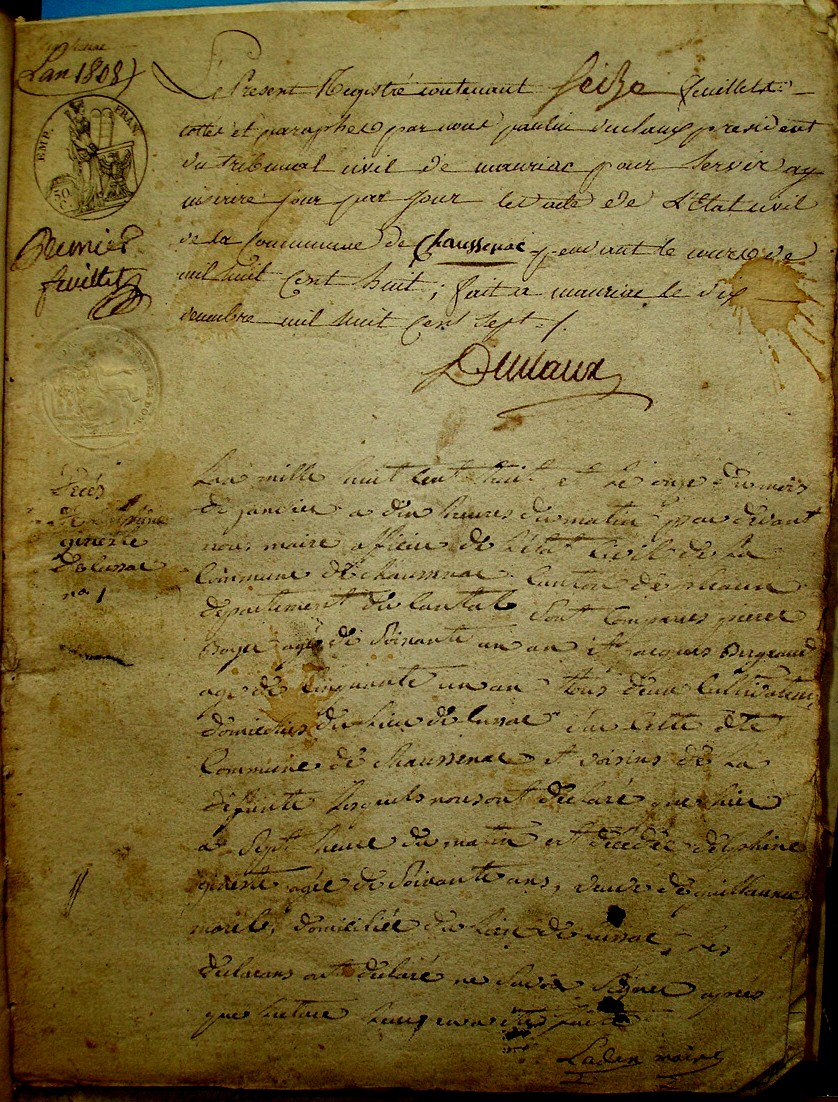 L'an 1808
EMP. FRAN.
50
C.
Premier
feuillet
Le Present Registre contenant Seize feuillets
cottés et paraphes par nous paulin Duclaux president
du tribunal civil de mauriac pour servir ay
inscrire jour par jour les acte de L'Etat civil
de la Commune de Chaussenac pendant le cours de
mil huit Cent huit ; fait a mauriac le dix
decembre mil huit Cent Sept ./.
Duclaux
Décès
de
ginesté
de lussac
no 1
Lan mille huit cent huit et le onze du mois
de janvier a dix heures du matin par devant
nous maire officier de L'état Civil de La
Commune de Chaussenac Canton de pleaux
departement du Cantal Sont Comparus pierre
Boyer agé de Soixante un an et jacques Bergeaud
age de Cinquante un an tous deux Cultivateurs
domicilies du Lieu de lussac Sur Cette dte
Commune de Chaussenac et voisins de La
defunte Lesquels nous ont déclaré que hier
a Sept heure du matin est décédée delphine
ginesté agée de Soixante ans, veuve de guillaume
morel, domiciliée du Lieu de lussac, Les
declarans ont déclaré ne Savoir Signer apres
que lecture Leur a été faite
Laden maire